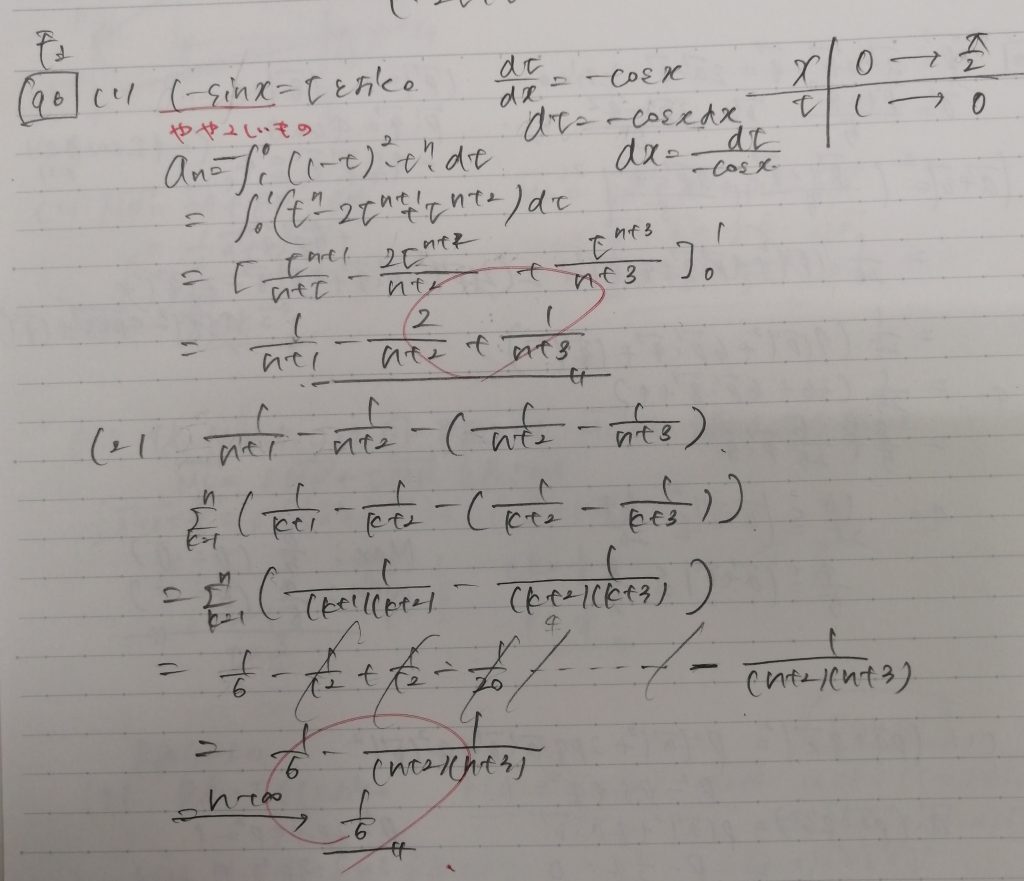 90 (1) 1-sinx=tとおく。 dt/dx = -cosx x | 0 → π/2
ややこしいもの dt = -cosxdx t | 1 → 0
an = -∫₁⁰ (1-t)²·tⁿ dt dx = dt/-cosx
= ∫₀¹ (tⁿ - 2tⁿ⁺¹ + tⁿ⁺²) dt
= [ tⁿ⁺¹/n+1 - 2tⁿ⁺²/n+2 + tⁿ⁺³/n+3 ]₀¹
= 1/n+1 - 2/n+2 + 1/n+3
(2) 1/n+1 - 1/n+2 - (1/n+2 - 1/n+3)
Σₖ₌₁ⁿ (1/k+1 - 1/k+2 - (1/k+2 - 1/k+3))
= Σₖ₌₁ⁿ (1/(k+1)(k+2) - 1/(k+2)(k+3))
= 1/6 - 1/12 + 1/12 - 1/20 ---- - 1/(n+2)(n+3)
= 1/6 - 1/(n+2)(n+3)
n→∞ → 1/6